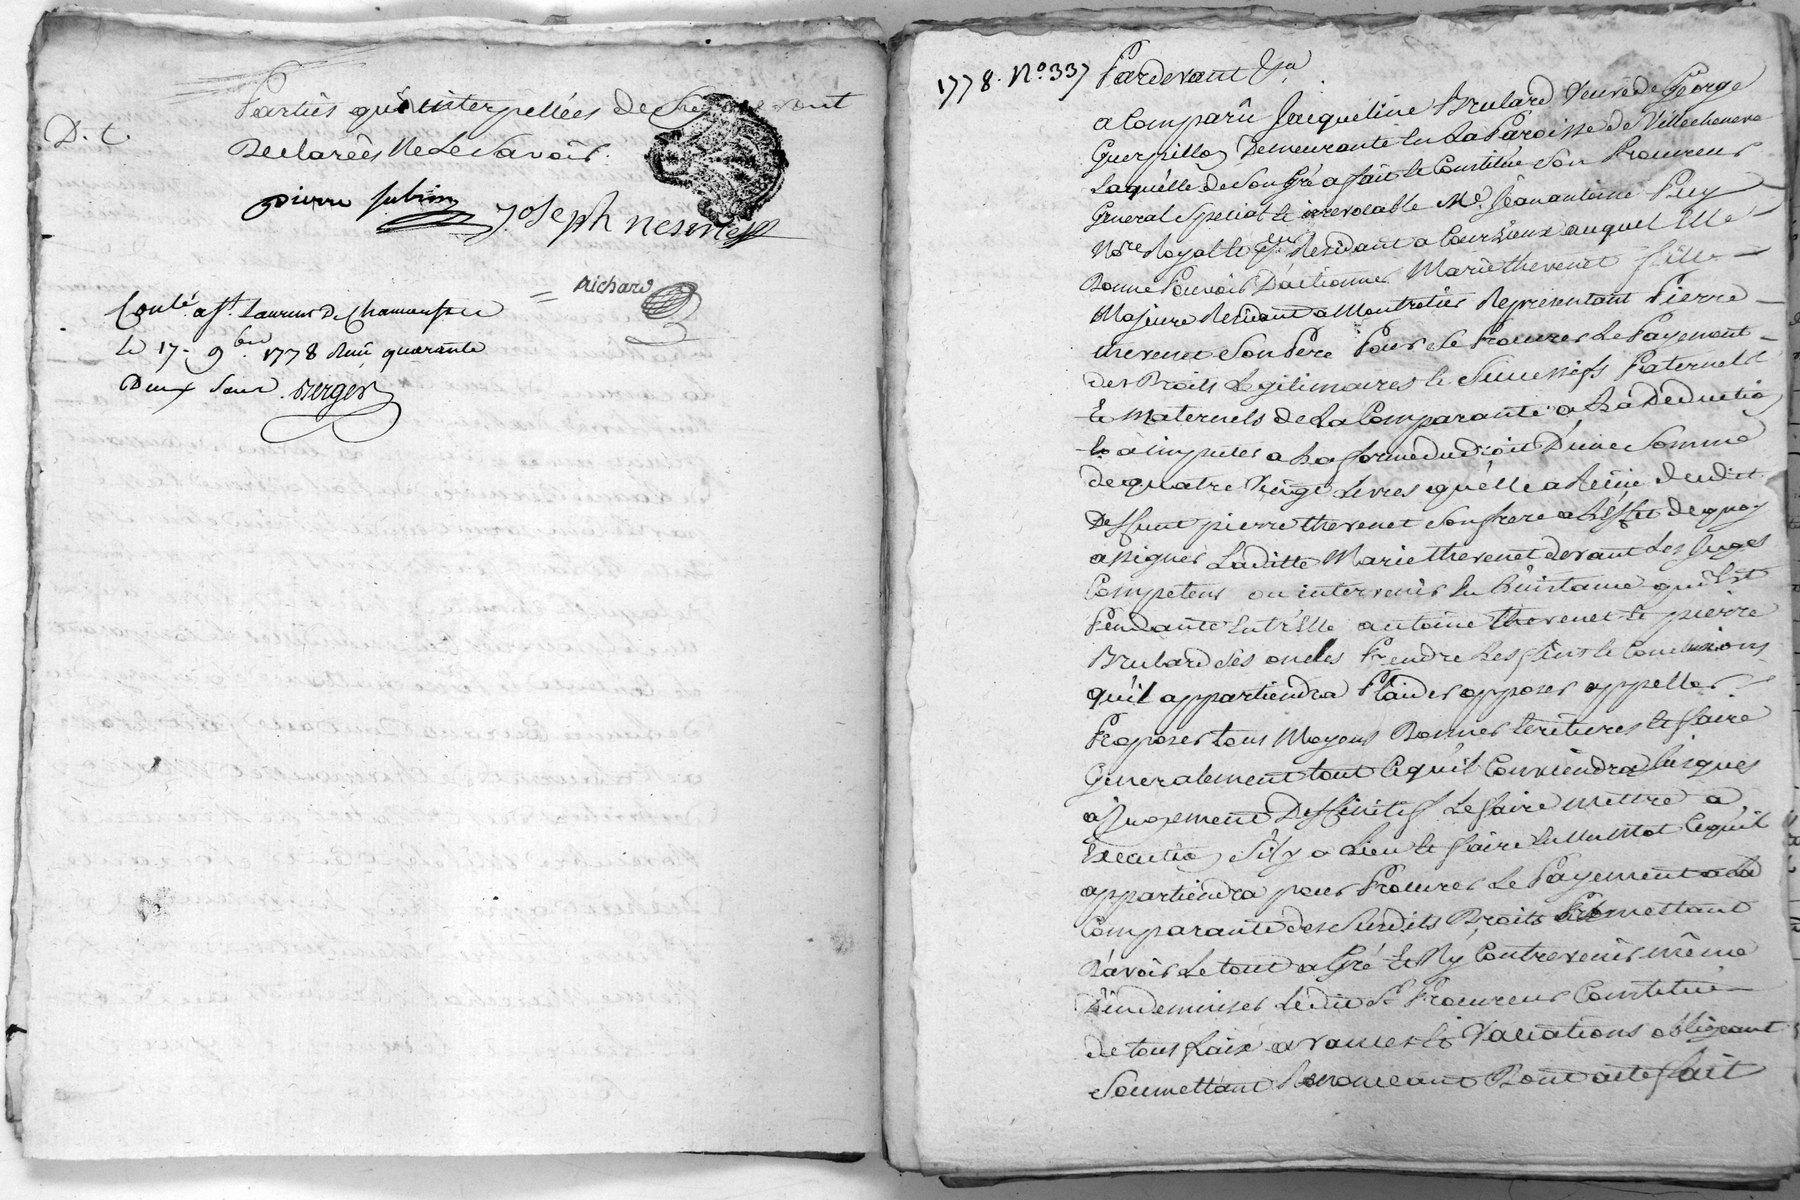 D. t.
Parties qui interpellées de
Declareés Ne Le Savoir.
pierre
Joseph
Richard
Conlé a St. Laurens De Chamousset
Le 17. 9bre 1778 Reçu quarante
Deux Sous. Berger
1778. No. 337 Pardevant &a
a Comparû Jacqueline Brulard Veuve de George
Guerpillon Demeurante en La Paroisse de Villecheneve
Laquelle de Son Gré a fait et Constitué Son Procureur
General Special et irrevocable Me. Jean antoine Puy
Nore. Royal et Residant a Coursieux auquel Elle
Donne Pouvoir D'actionner Marie thevenet fille
Majeure Residant a Montrotier Representant Pierre
thevenet Son Pere Pour Se Procurer Le Payement
des Droits Legitimaires et Successifs Paternels
Et Maternels de La Comparante a La Deduction
et a imputer a La forme du droit D'une Somme
de quatre Vingt Livres qu'elle a Reçüe dudit
Deffunt pierre thevenet Son frere a L'effet de quoy
assigner Laditte Marie thevenet devant Les Juges
Competens ou intervenir En L'instance qui Est
Pendante Entr'Elle antoine thevenet et pierre
Brulard Ses oncles Prendre Les fins et Conclusions
qu'il appartiendra Plaider opposer appeller
Proposer tous Moyens Donner Ecritures et faire
Generalement tout Cequil Conviendra Jusques
a Jugement Deffinitif Le faire mettre a
Execution S'il y a Lieu et faire Cequil
appartiendra pour Procurer Le Payement a La
Comparante des Susdits Droits Promettant
D'avoir Le tout a Gré Et N'y Contrevenir même
D'indemniser Ledit Sr. Procureur Constitué
de tous fraix avances et Vacations obligeant
Soumettant Renonceant Dont acte fait